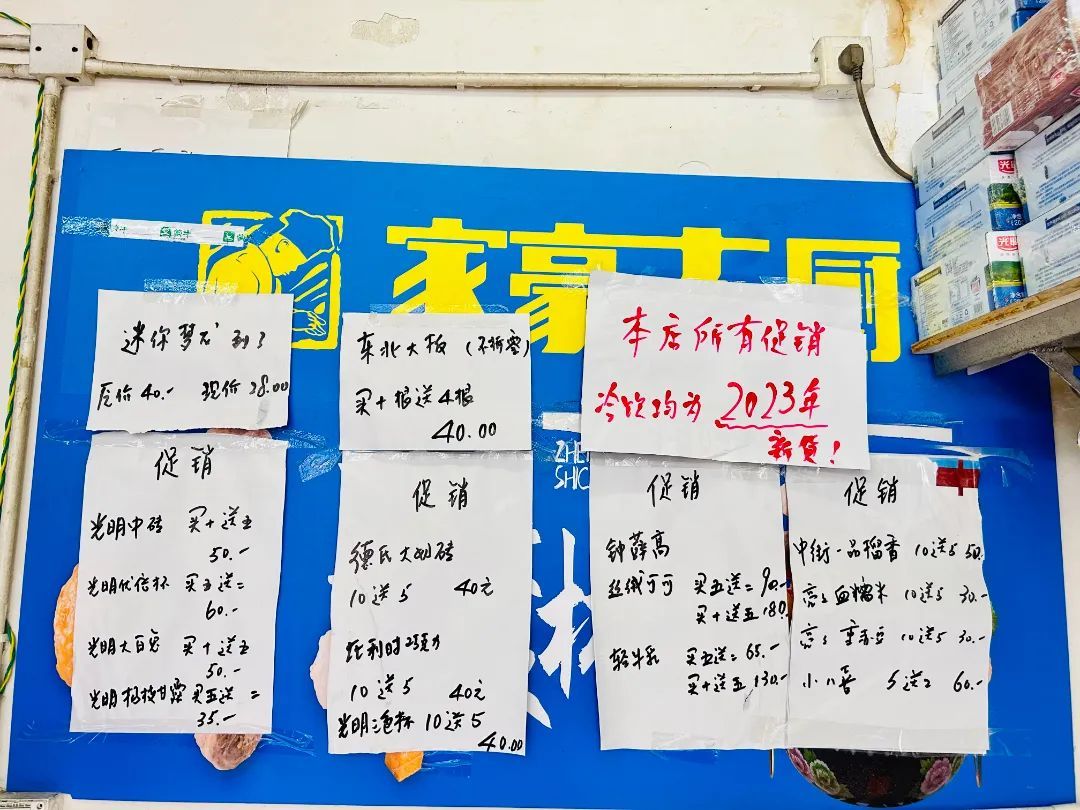 家豪大厨
迷你梦龙到了
原价40.- 现价28.00
东北大板（不拆零）
买十根送4根
40.00
本店所有促销
冷饮均为2023年
新货！
促销
光明中砖 买十送五
50.-
光明优倍杯 买五送二
60.-
光明大白兔 买十送五
50.-
光明杨枝甘露 买五送二
35.-
促销
德氏大奶砖
10送5 40元
比利时巧克力
10送5 40元
光明 杯 10送5
40.00
促销
钟薛高
丝绒可可 买五送二 90.-
买十送五 180.-
轻牛乳 买五送二 65.-
买十送五 130.-
促销
中街一品榴香 10送5 50.-
血糯米 10送5 30.-
10送5 30.-
小 5送2 60.-
光明
光明